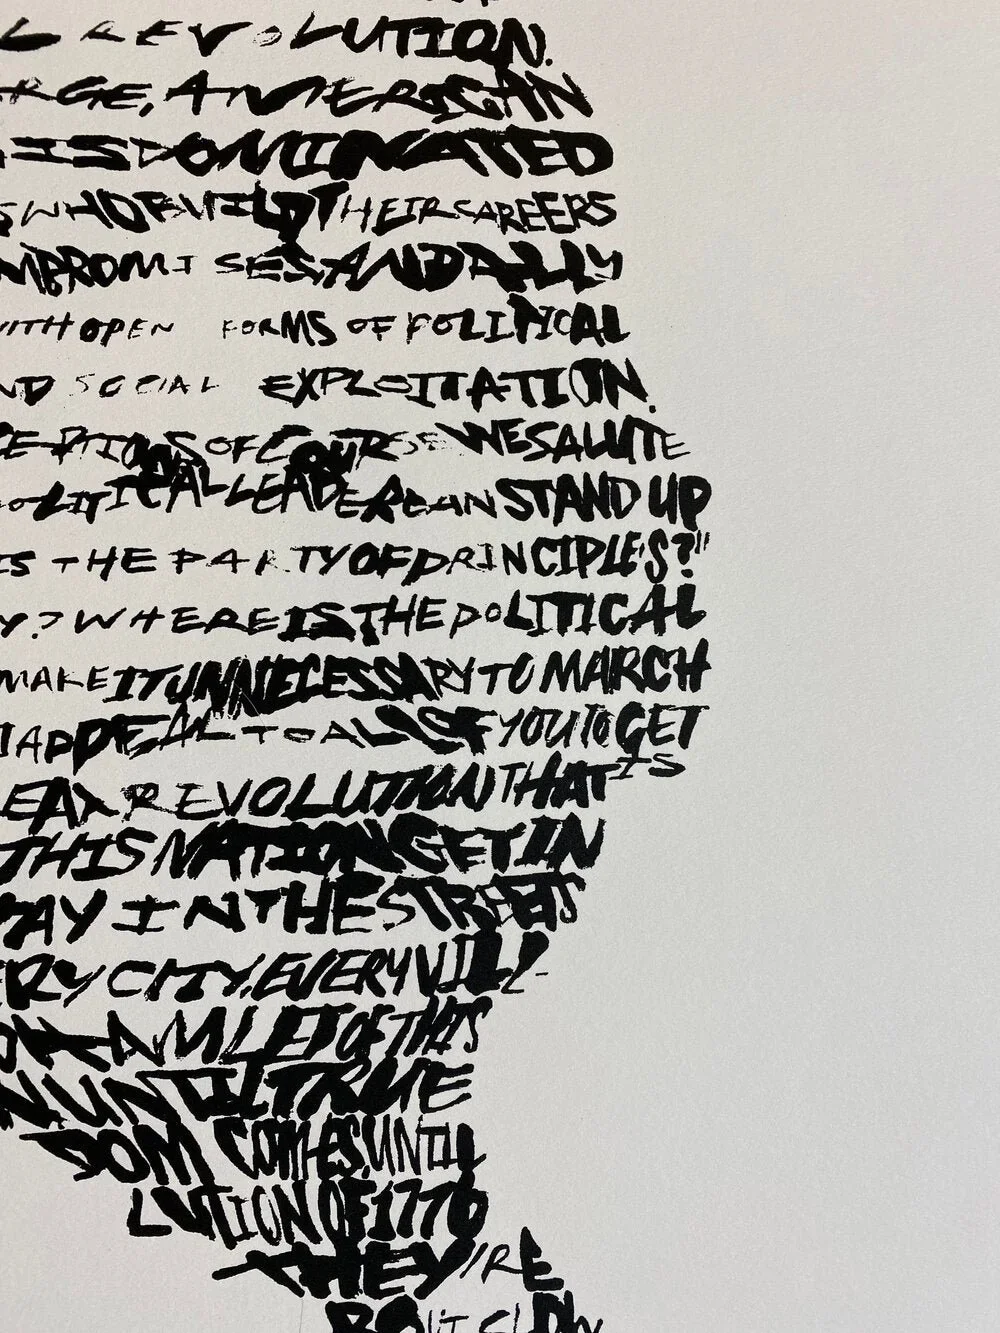 L REVOLUTION.
RGE, AMERICAN
IS DOMINATED
S WHO BUILD THEIR CAREERS
MPROMISES AND ALLY
WITH OPEN FORMS OF POLITICAL
ND SOCIAL EXPLOITATION.
CEPTIONS OF COURSE WE SALUTE
OLITICAL LEADER CAN STAND UP
IS THE PARTY OF PRINCIPLES?"
Y? WHERE IS THE POLITICAL
MAKE IT UNNECESSARY TO MARCH
I APPEAL TO ALL OF YOU TO GET
EAT REVOLUTION THAT IS
THIS NATION GET IN
TAY IN THE STREETS
ERY CITY, EVERY VILL-
HAMLET OF THIS
N UNTIL TRUE
DOM COMES, UNTIL
LUTION OF 1776
THEY'RE
SLOW